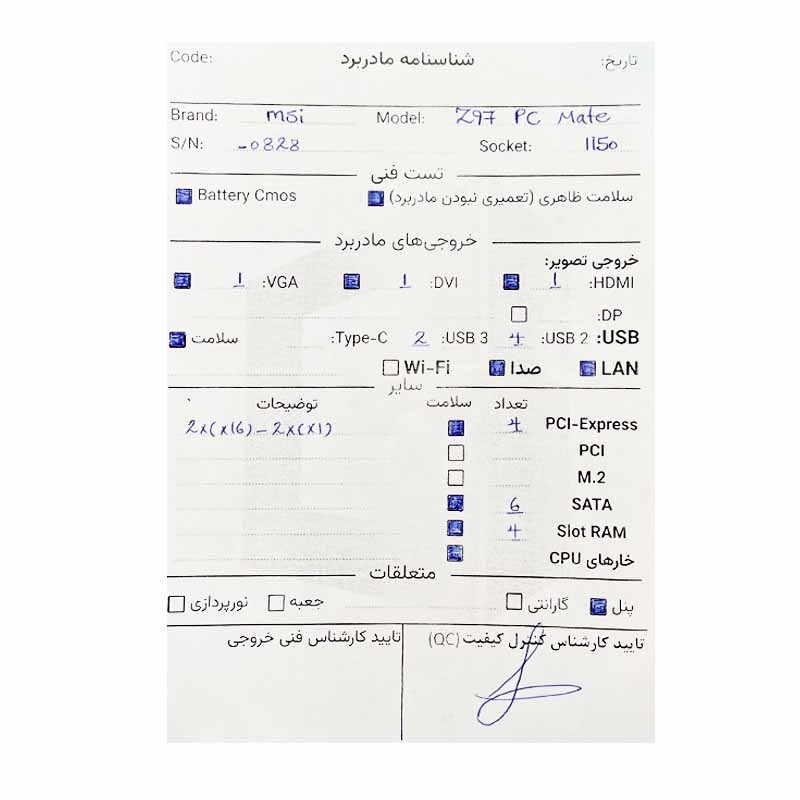 Code: شناسنامه مادربرد تاریخ:
Brand: msi Model: Z97 PC Mate
S/N: -0828 Socket: 1150
تست فنی
سلامت ظاهری (تعمیری نبودن مادربرد) Battery Cmos
خروجی‌های مادربرد
خروجی تصویر:
HDMI: 1 DVI: 1 VGA: 1
DP:
USB: USB 2: 4 USB 3: 2 Type-C: سلامت
LAN صدا Wi-Fi
سایر
تعداد سلامت توضیحات
PCI-Express 4 2x(x16)-2x(x1)
PCI
M.2
SATA 6
Slot RAM 4
خارهای CPU
متعلقات
پنل گارانتی جعبه نورپردازی
تایید کارشناس کنترل کیفیت (QC) تایید کارشناس فنی خروجی